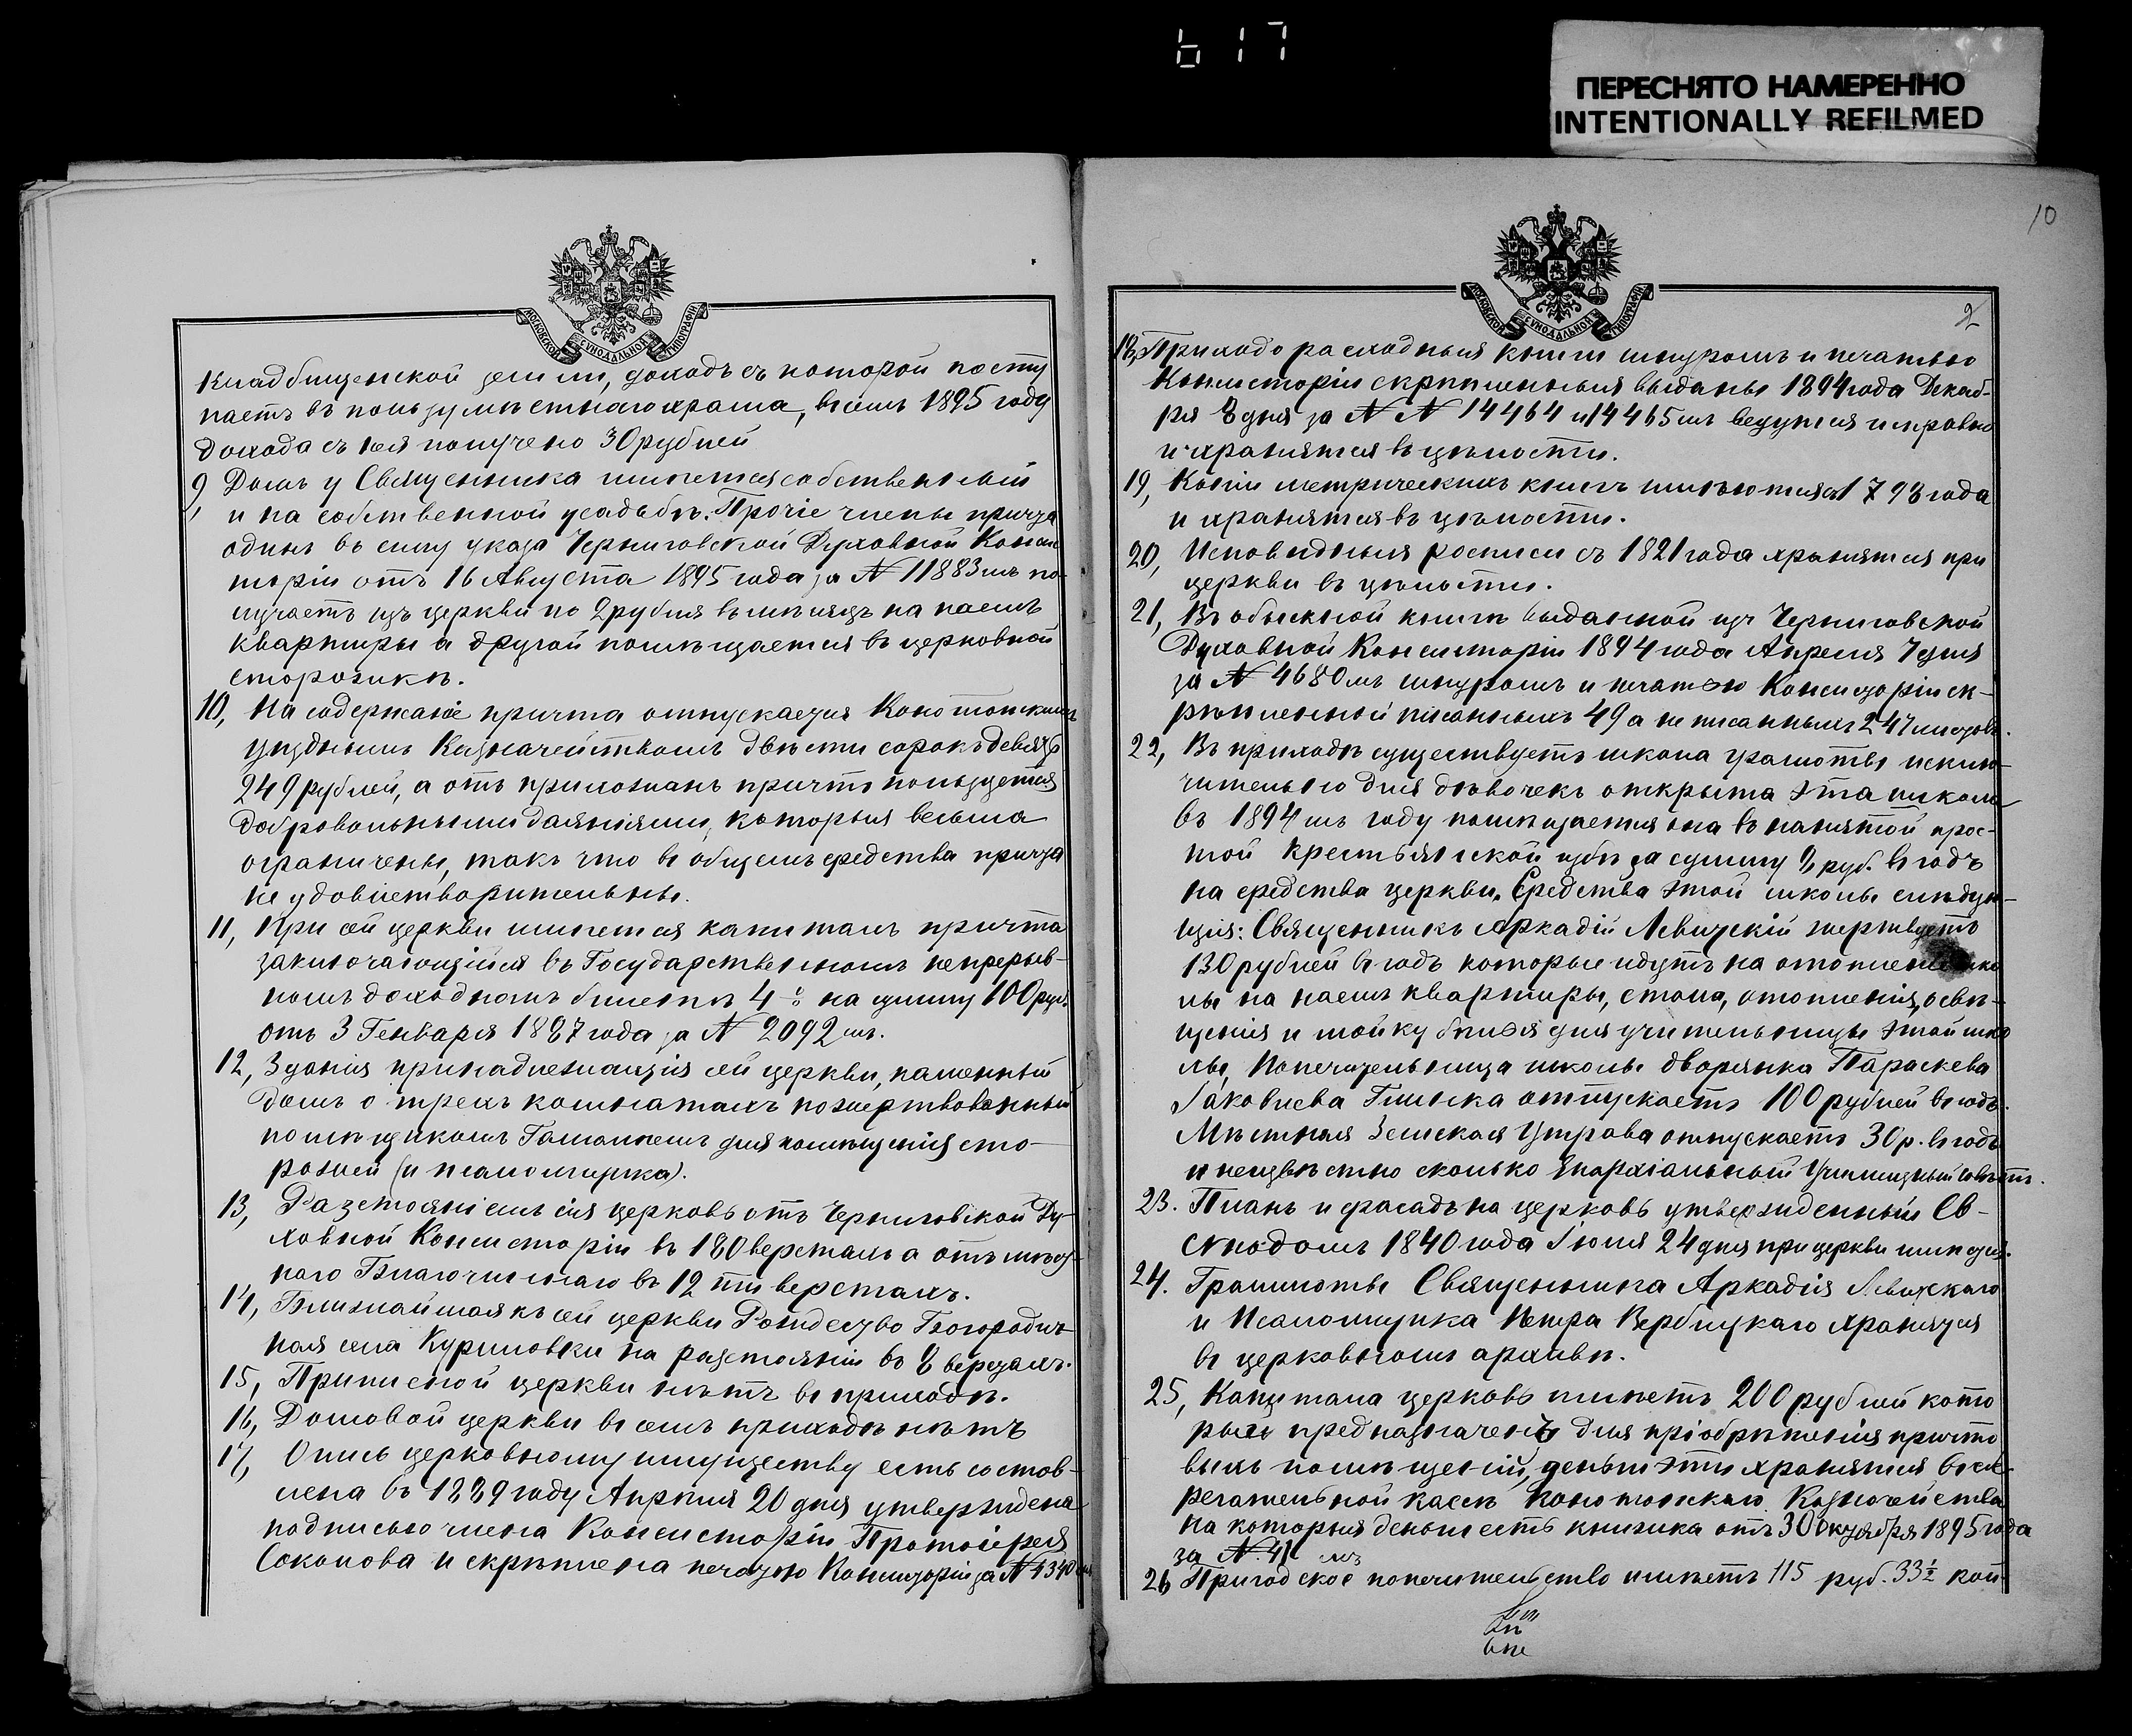 617
ПЕРЕСНЯТО НАМЕРЕННО
INTENTIONALLY REFILMED
МОСКОВСКОЙ СѴНОДАЛЬНОЙ ТИПОГРАФІИ
кладбищенской земли, доходъ съ которой посту
паетъ въ пользу мѣстнаго храма, въ семъ 1895 году
дохода съ нея получено 30 рублей
9, Домъ у Священника имѣется собственный
и на собственной усадьбѣ. Прочіе члены причта
одинъ въ силу указа Черниговской Духовной Консис
торіи отъ 16 Августа 1895 года за № 11883мъ по-
лучаетъ изъ церкви по 2 рубля въ мѣсяцъ на наемъ
квартиры а другой помѣщается въ церковной
сторожкѣ.
10, На содержаніе причта отпускается Конотопскимъ
уѣзднымъ Казначействомъ двѣсти сорокъ девять
249 рублей, а отъ прихожанъ причтъ пользуется
добровольными даяніями, которыя весьма
ограничены, такъ что въ общемъ средства причта
не удовлетворительны.
11, При сей церкви имѣется капиталъ причта
заключающійся въ Государственномъ непрерыв-
номъ доходномъ билетѣ 4% на сумму 100 руб.
отъ 3 Генваря 1887 года за № 2092мъ.
12, Зданія принадлежащія сей церкви, каменный
домъ о трехъ комнатахъ пожертвованный
помѣщикомъ для помѣщенія сто-
рожей (и псаломщика).
13, Разстояніемъ сія церковь отъ Черниговской Ду-
ховной Консисторіи въ 180 верстахъ а отъ мѣст-
наго Благочиннаго въ 12ти верстахъ.
14, Ближайшая къ сей церкви Рождество Богородич-
ная села Куриловки на разстояніи въ 8 верстахъ.
15, Приписной церкви нѣтъ въ приходѣ.
16, Домовой церкви въ семъ приходѣ нѣтъ
17, Опись церковному имуществу есть состав-
лена въ 1889 году Апрѣля 20 дня утверждена
подписью члена Консисторіи Протоіерея
Соколова и скрѣплена печатью Консисторіи за № 4340мъ
10
МОСКОВСКОЙ СѴНОДАЛЬНОЙ ТИПОГРАФІИ
2
18, Приходо расходныя книги шнуромъ и печатью
Консисторіи скрѣпленныя выданы 1894 года Декаб-
ря 8 дня за № № 14464 и 14465мъ ведутся исправно
и хранятся въ цѣлости.
19, Копіи метрическихъ книгъ имѣются съ 1793 года
и хранятся въ цѣлости.
20, Исповѣдныя росписи съ 1821 года хранятся при
церкви въ цѣлости.
21, Въ обыскной книгѣ выданной изъ Черниговской
Духовной Консисторіи 1894 года Апреля 7 дня
за № 4680мъ шнуромъ и печатью Консисторіи ск-
рѣпленной писанныхъ 49 а не писанныхъ 247 листовъ.
22, Въ приходѣ существуетъ школа грамоты исклю-
чительно для дѣвочекъ открыта эта школа
въ 1894мъ году помѣщается она въ нанятой прос-
той крестьянской избѣ за сумму руб. въ годъ
на средства церкви. Средства этой школы слѣдую-
щія: Священникъ Аркадій Левитскій жертвуетъ
130 рублей въ годъ которые идутъ на отопленіе шко
лы на наемъ квартиры, стола, отопленія, освѣ-
щенія и мойку бѣлья для учительницы этой шко
лы, Попечительница школы дворянка Параскева
Іаковлева Глинска отпускаетъ 100 рублей въ годъ.
Мѣстная Земская Управа отпускаетъ 30 р. въ годъ
и неизвѣстно сколько Епархіальный Училищный Совѣтъ.
23. Планъ и фасадъ на церковь утвержденный Св-
Сѵнодомъ 1840 года Іюля 24 дня при церкви имѣется.
24. Граммоты Священника Аркадія Левитскаго
и Псаломщика Петра Вербицкаго хранятся
въ церковномъ архивѣ.
25, Капитала церковь имѣетъ 200 рублей кото
рые предназначены для пріобрѣтенія причто
выхъ помѣщеній, деньги эти хранятся въ сбе-
регательной кассѣ Конотопскаго Казначейства
на которыя деньги есть книжка отъ 30 Октября 1895 года
за № 41мъ
26 Приходское попечительство имѣетъ 115 руб. 33½ коп.